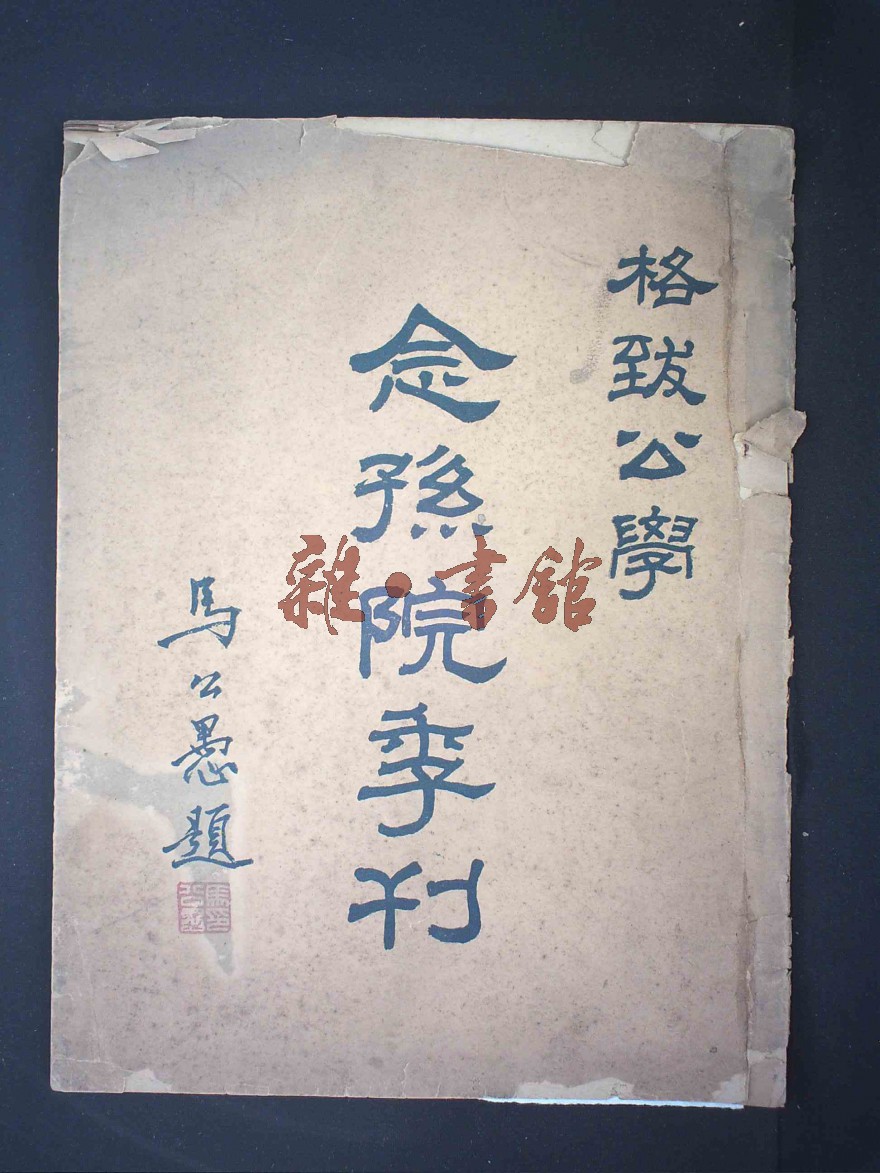 格致公學
念孫院季刊
馬公愚題
雜·書館